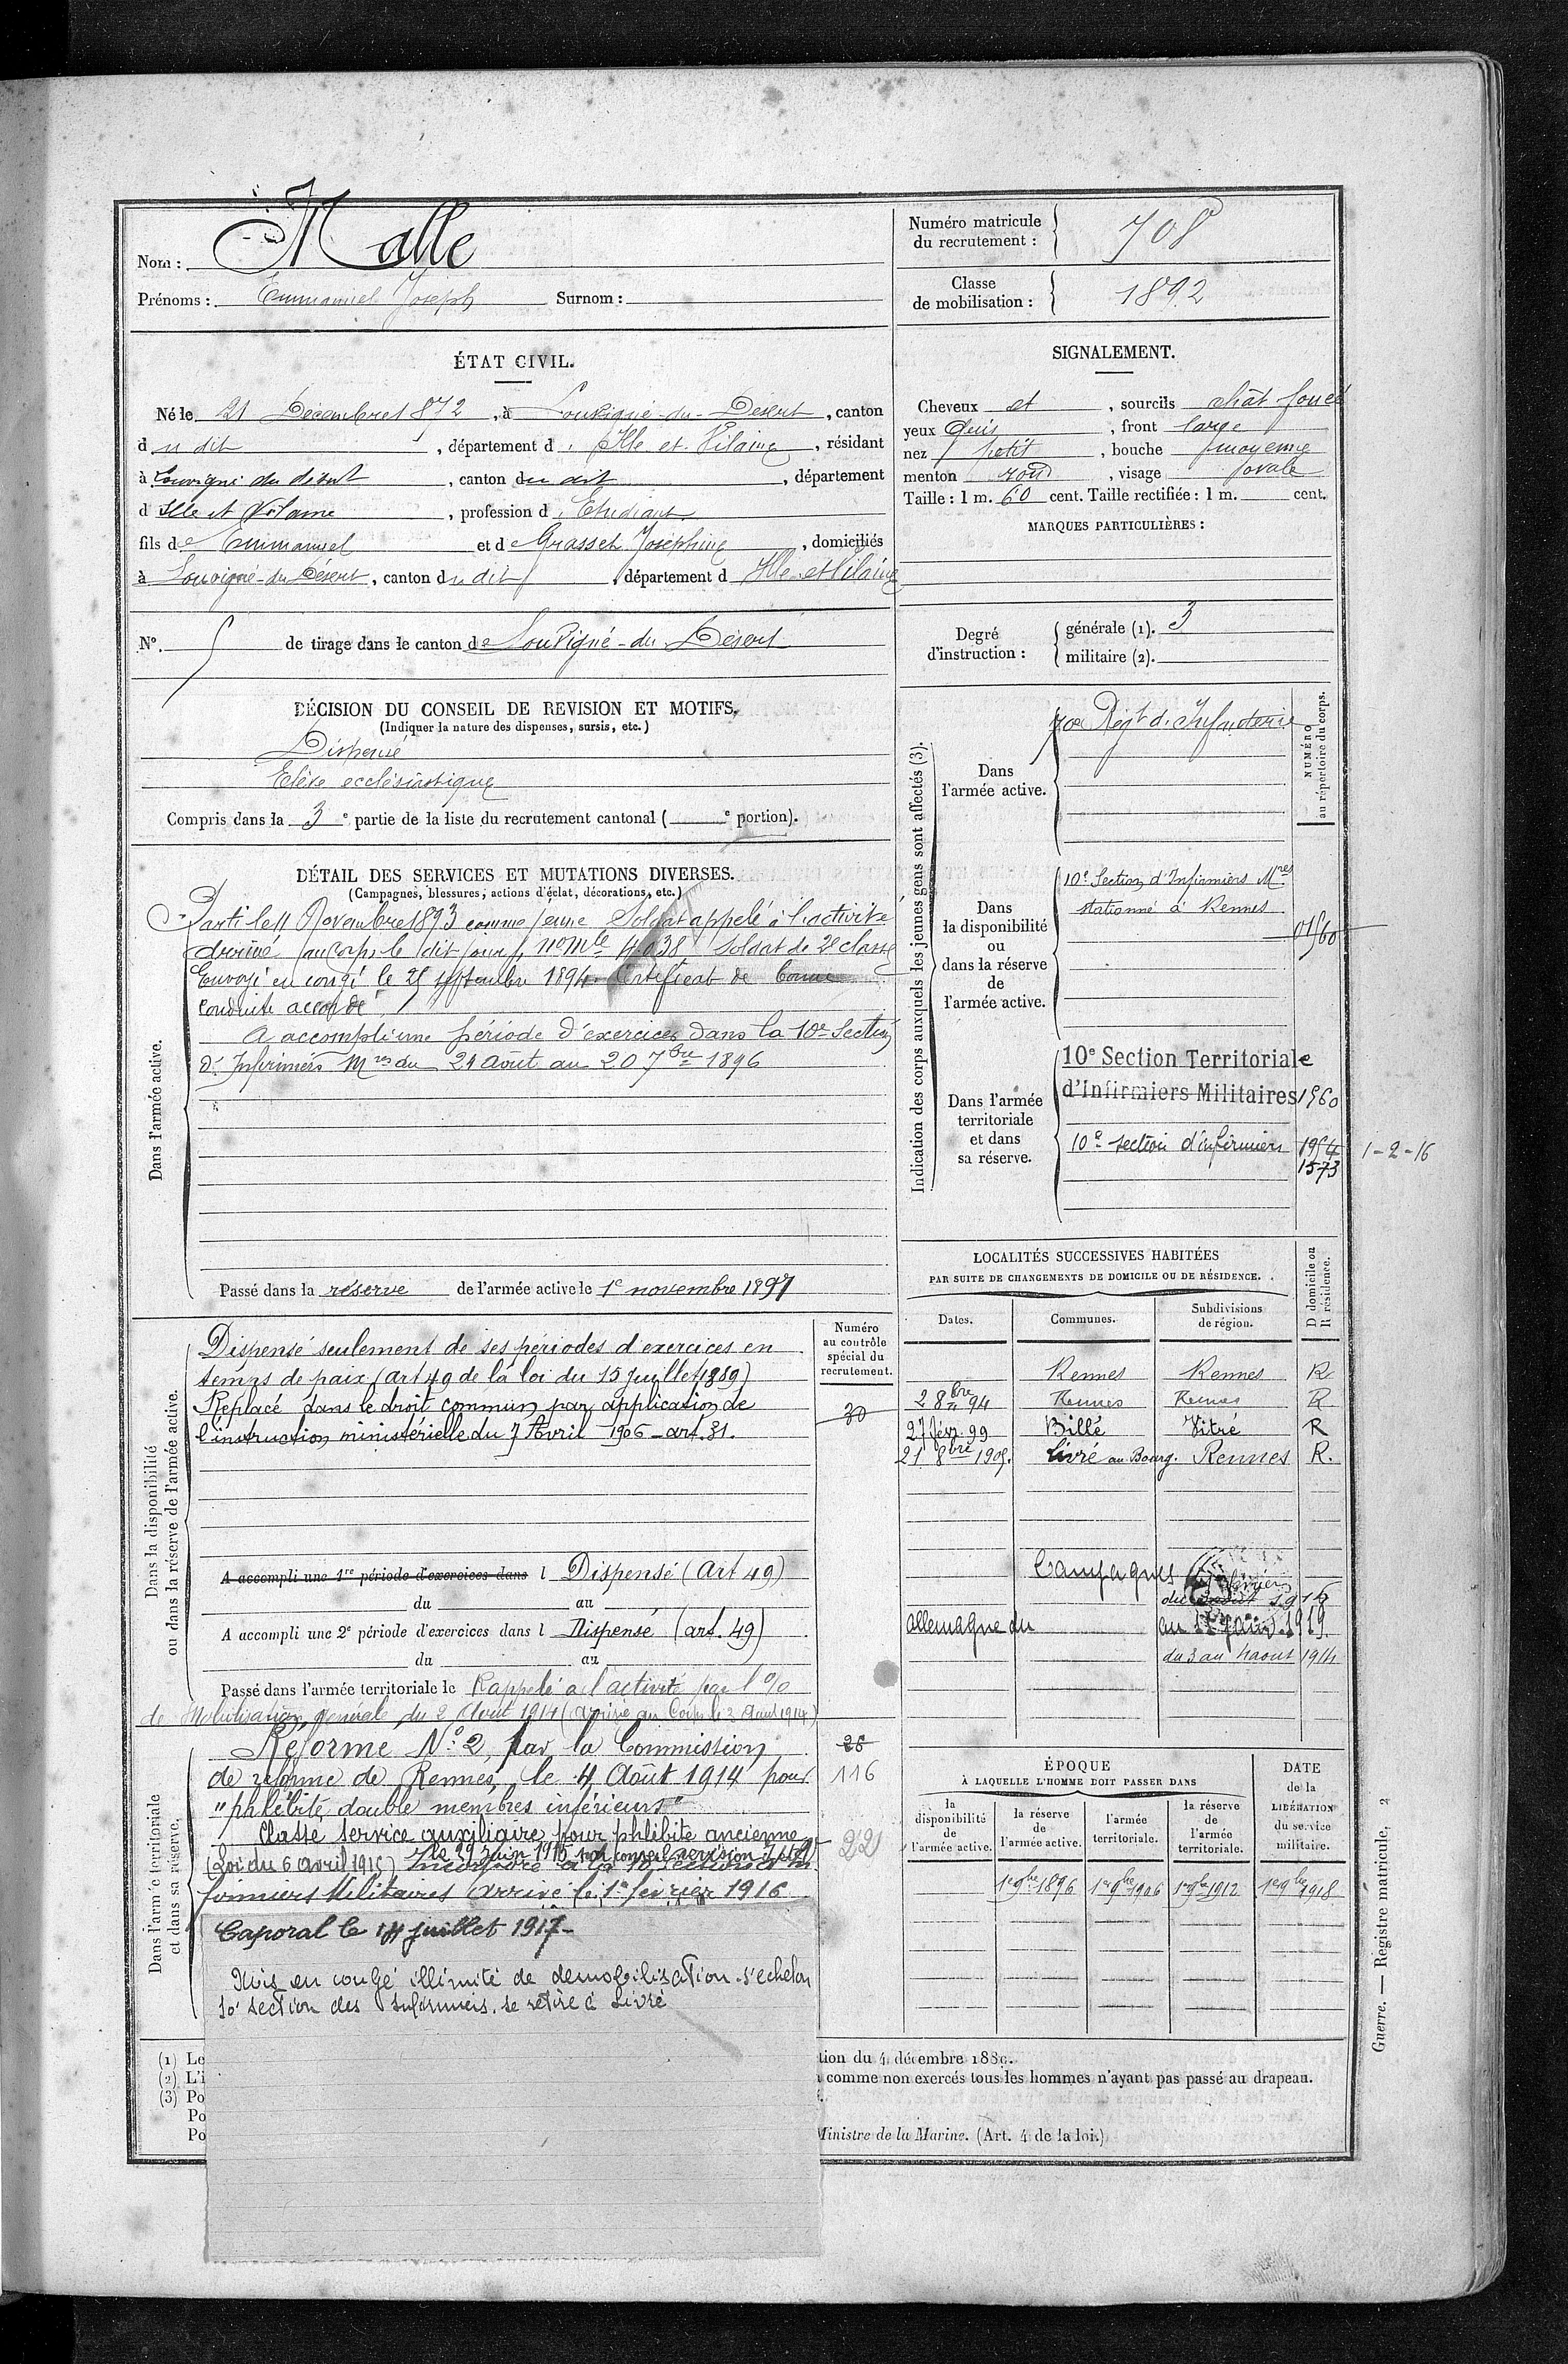 Nom : Malle
Prénoms : Emmanuel Joseph Surnom :
Numéro matricule du recrutement : 708
Classe de mobilisation : 1892
ÉTAT CIVIL.
Né le 21 Décembre 1872, à Louvigné-du-Désert, canton
du dit, département d'Ille et Vilaine, résidant
à Louvigné du désert, canton du dit, département
d'Ille et Vilaine, profession d'Etudiant
fils de Emmanuel et de Grasset Joséphine, domiciliés
à Louvigné-du-Désert, canton du dit, département d'Ille et Vilaine
N° 5 de tirage dans le canton de Louvigné-du-Désert
SIGNALEMENT.
Cheveux et, sourcils chât foncé
yeux gris, front large
nez petit, bouche moyenne
menton rond, visage ovale
Taille : 1 m. 60 cent. Taille rectifiée : 1 m. cent.
MARQUES PARTICULIÈRES :
Degré d'instruction : générale (1). 3
militaire (2).
DÉCISION DU CONSEIL DE REVISION ET MOTIFS.
(Indiquer la nature des dispenses, sursis, etc.)
Dispensé
Elève ecclésiastique
Compris dans la 3e partie de la liste du recrutement cantonal ( e portion).
DÉTAIL DES SERVICES ET MUTATIONS DIVERSES.
(Campagnes, blessures, actions d'éclat, décorations, etc.)
Dans l'armée active.
Parti le 11 Novembre 1893 comme jeune Soldat appelé à l'activité
Arrivé au corps le dit jour, n° Mle 4038 Soldat de 2e classe
Envoyé en congé le 25 septembre 1894. Certificat de bonne
conduite accordé
A accompli une période d'exercices dans la 10e Section
d'Infirmiers Mres du 24 Août au 20 7bre 1896
Passé dans la réserve de l'armée active le 1e novembre 1897
Indication des corps auxquels les jeunes gens sont affectés (3).
NUMÉRO au répertoire du corps.
Dans l'armée active.
70e Régt d'Infanterie
Dans la disponibilité ou dans la réserve de l'armée active.
10e Section d'Infirmiers Mres
stationné à Rennes
01560
Dans l'armée territoriale et dans sa réserve.
10e Section Territoriale
d'Infirmiers Militaires 1560
10e section d'infirmiers 1954 1-2-16
1573
LOCALITÉS SUCCESSIVES HABITÉES
PAR SUITE DE CHANGEMENTS DE DOMICILE OU DE RÉSIDENCE.
D domicile ou R résidence.
Dates. Communes. Subdivisions de région.
Rennes Rennes R
2 8bre 94 Rennes Rennes R
27 févr. 99 Billé Vitré R
21 8bre 1905. Livré au Bourg. Rennes R.
Campagnes
Allemagne du
au 1919.
du 3 au 4 aout 1914
Dans la disponibilité ou dans la réserve de l'armée active.
Numéro au contrôle spécial du recrutement.
Dispensé seulement de ses périodes d'exercices en
temps de paix (art 49 de la loi du 15 Juillet 1889)
Replacé dans le droit commun par application de 30
l'instruction ministérielle du 7 Avril 1906 – art. 31.
A accompli une 1re période d'exercices dans l Dispensé (Art 49)
du au
A accompli une 2e période d'exercices dans l Dispensé (art. 49)
du au
Passé dans l'armée territoriale le Rappelé à l'activité par l'O/o
de Mobilisation générale du 2 Août 1914 (arrivé au Corps le 3 Août 1914)
Dans l'armée territoriale et dans sa réserve.
Réformé N° 2, par la Commission 26
de réforme de Rennes, le 4 Août 1914 pour 116
"phlébite double membres inférieurs"
Classé service auxiliaire pour phlébite ancienne
le 29 Juin 1915 par conseil revision 22
(Loi du 6 avril 1915) Incorporé à la 10 Section d'In
firmiers Militaires Arrivé le 1e février 1916
Caporal le 14 juillet 1917 –
Mis en congé illimité de démobilisation échelon
10e section des infirmiers. se retire à Livré
ÉPOQUE
À LAQUELLE L'HOMME DOIT PASSER DANS
la disponibilité de l'armée active.
la réserve de l'armée active.
l'armée territoriale.
la réserve de l'armée territoriale.
DATE de la LIBÉRATION du service militaire.
1er 9bre 1896 1er 9bre 1906 1er 9bre 1912 1er 9bre 1918
(1) Le
(2) L'i
(3) Po
Po
Po
tion du 4 décembre 1889.
comme non exercés tous les hommes n'ayant pas passé au drapeau.
Ministre de la Marine. (Art. 4 de la loi.)
Guerre. — Registre matricule, 2